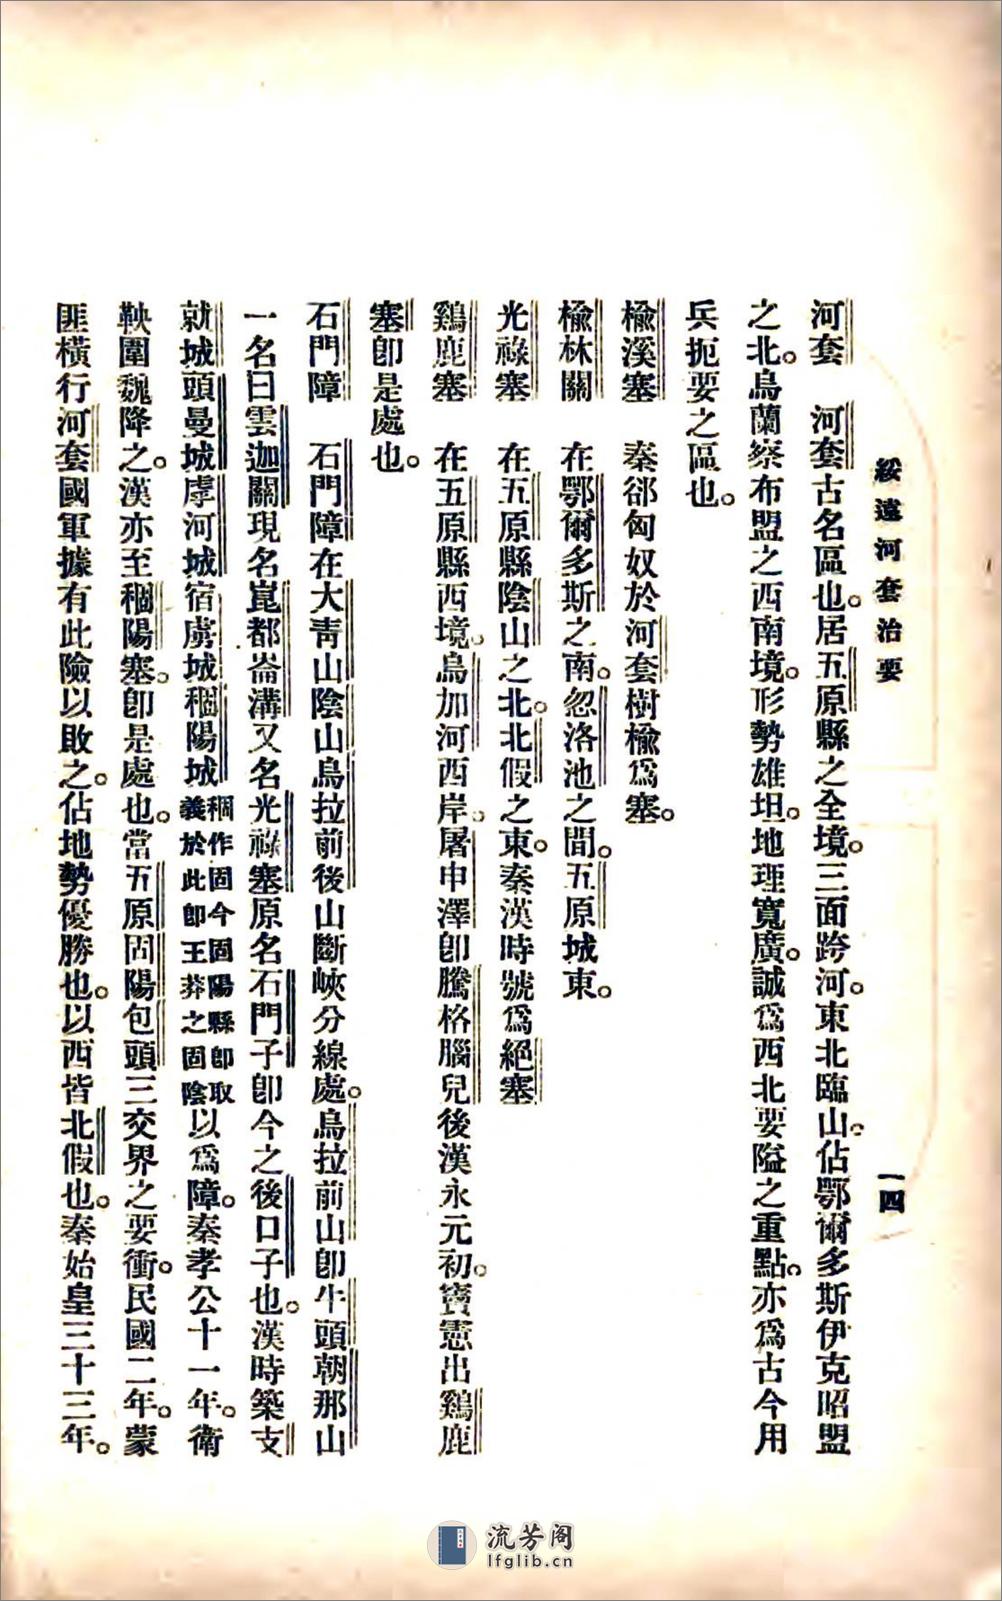 綏遠河套治要
一四
河套　河套古名區也。居五原縣之全境。三面跨河。東北臨山。佔鄂爾多斯伊克昭盟
之北。烏蘭察布盟之西南境。形勢雄坦。地理寬廣。誠爲西北要隘之重點。亦爲古今用
兵扼要之區也。
楡溪塞　秦郤匈奴於河套樹楡爲塞。
楡林關　在鄂爾多斯之南。忽洛池之間。五原城東。
光祿塞　在五原縣陰山之北。北假之東。秦漢時號爲絕塞
鷄鹿塞　在五原縣西境。烏加河西岸。屠申澤卽騰格腦兒後漢永元初。竇憲出鷄鹿
塞卽是處也。
石門障　石門障在大靑山陰山烏拉前後山斷峽分線處。烏拉前山卽牛頭朝那山
一名曰雲迦關現名崑都崙溝又名光祿塞原名石門子卽今之後口子也。漢時築支
就城頭曼城虖河城宿虜城稒陽城稒作固今固陽縣卽取義於此卽王莽之固陰以爲障。秦孝公十一年。衛
鞅圍魏降之。漢亦至稒陽塞。卽是處也。當五原固陽包頭三交界之要衝。民國二年。蒙
匪橫行河套國軍據有此險以敗之。佔地勢優勝也。以西皆北假也。秦始皇三十三年。
流芳阁
lfglib.cn